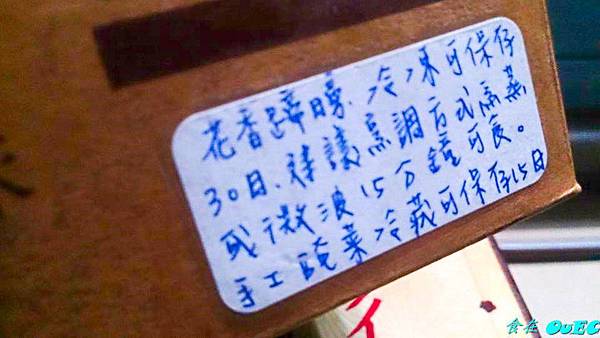 花香蹄膀.冷凍可保存
30日.建議烹調方式為蒸
或微波15分鐘可食。
手工醃菜冷藏可保存15日
食在 OuEC